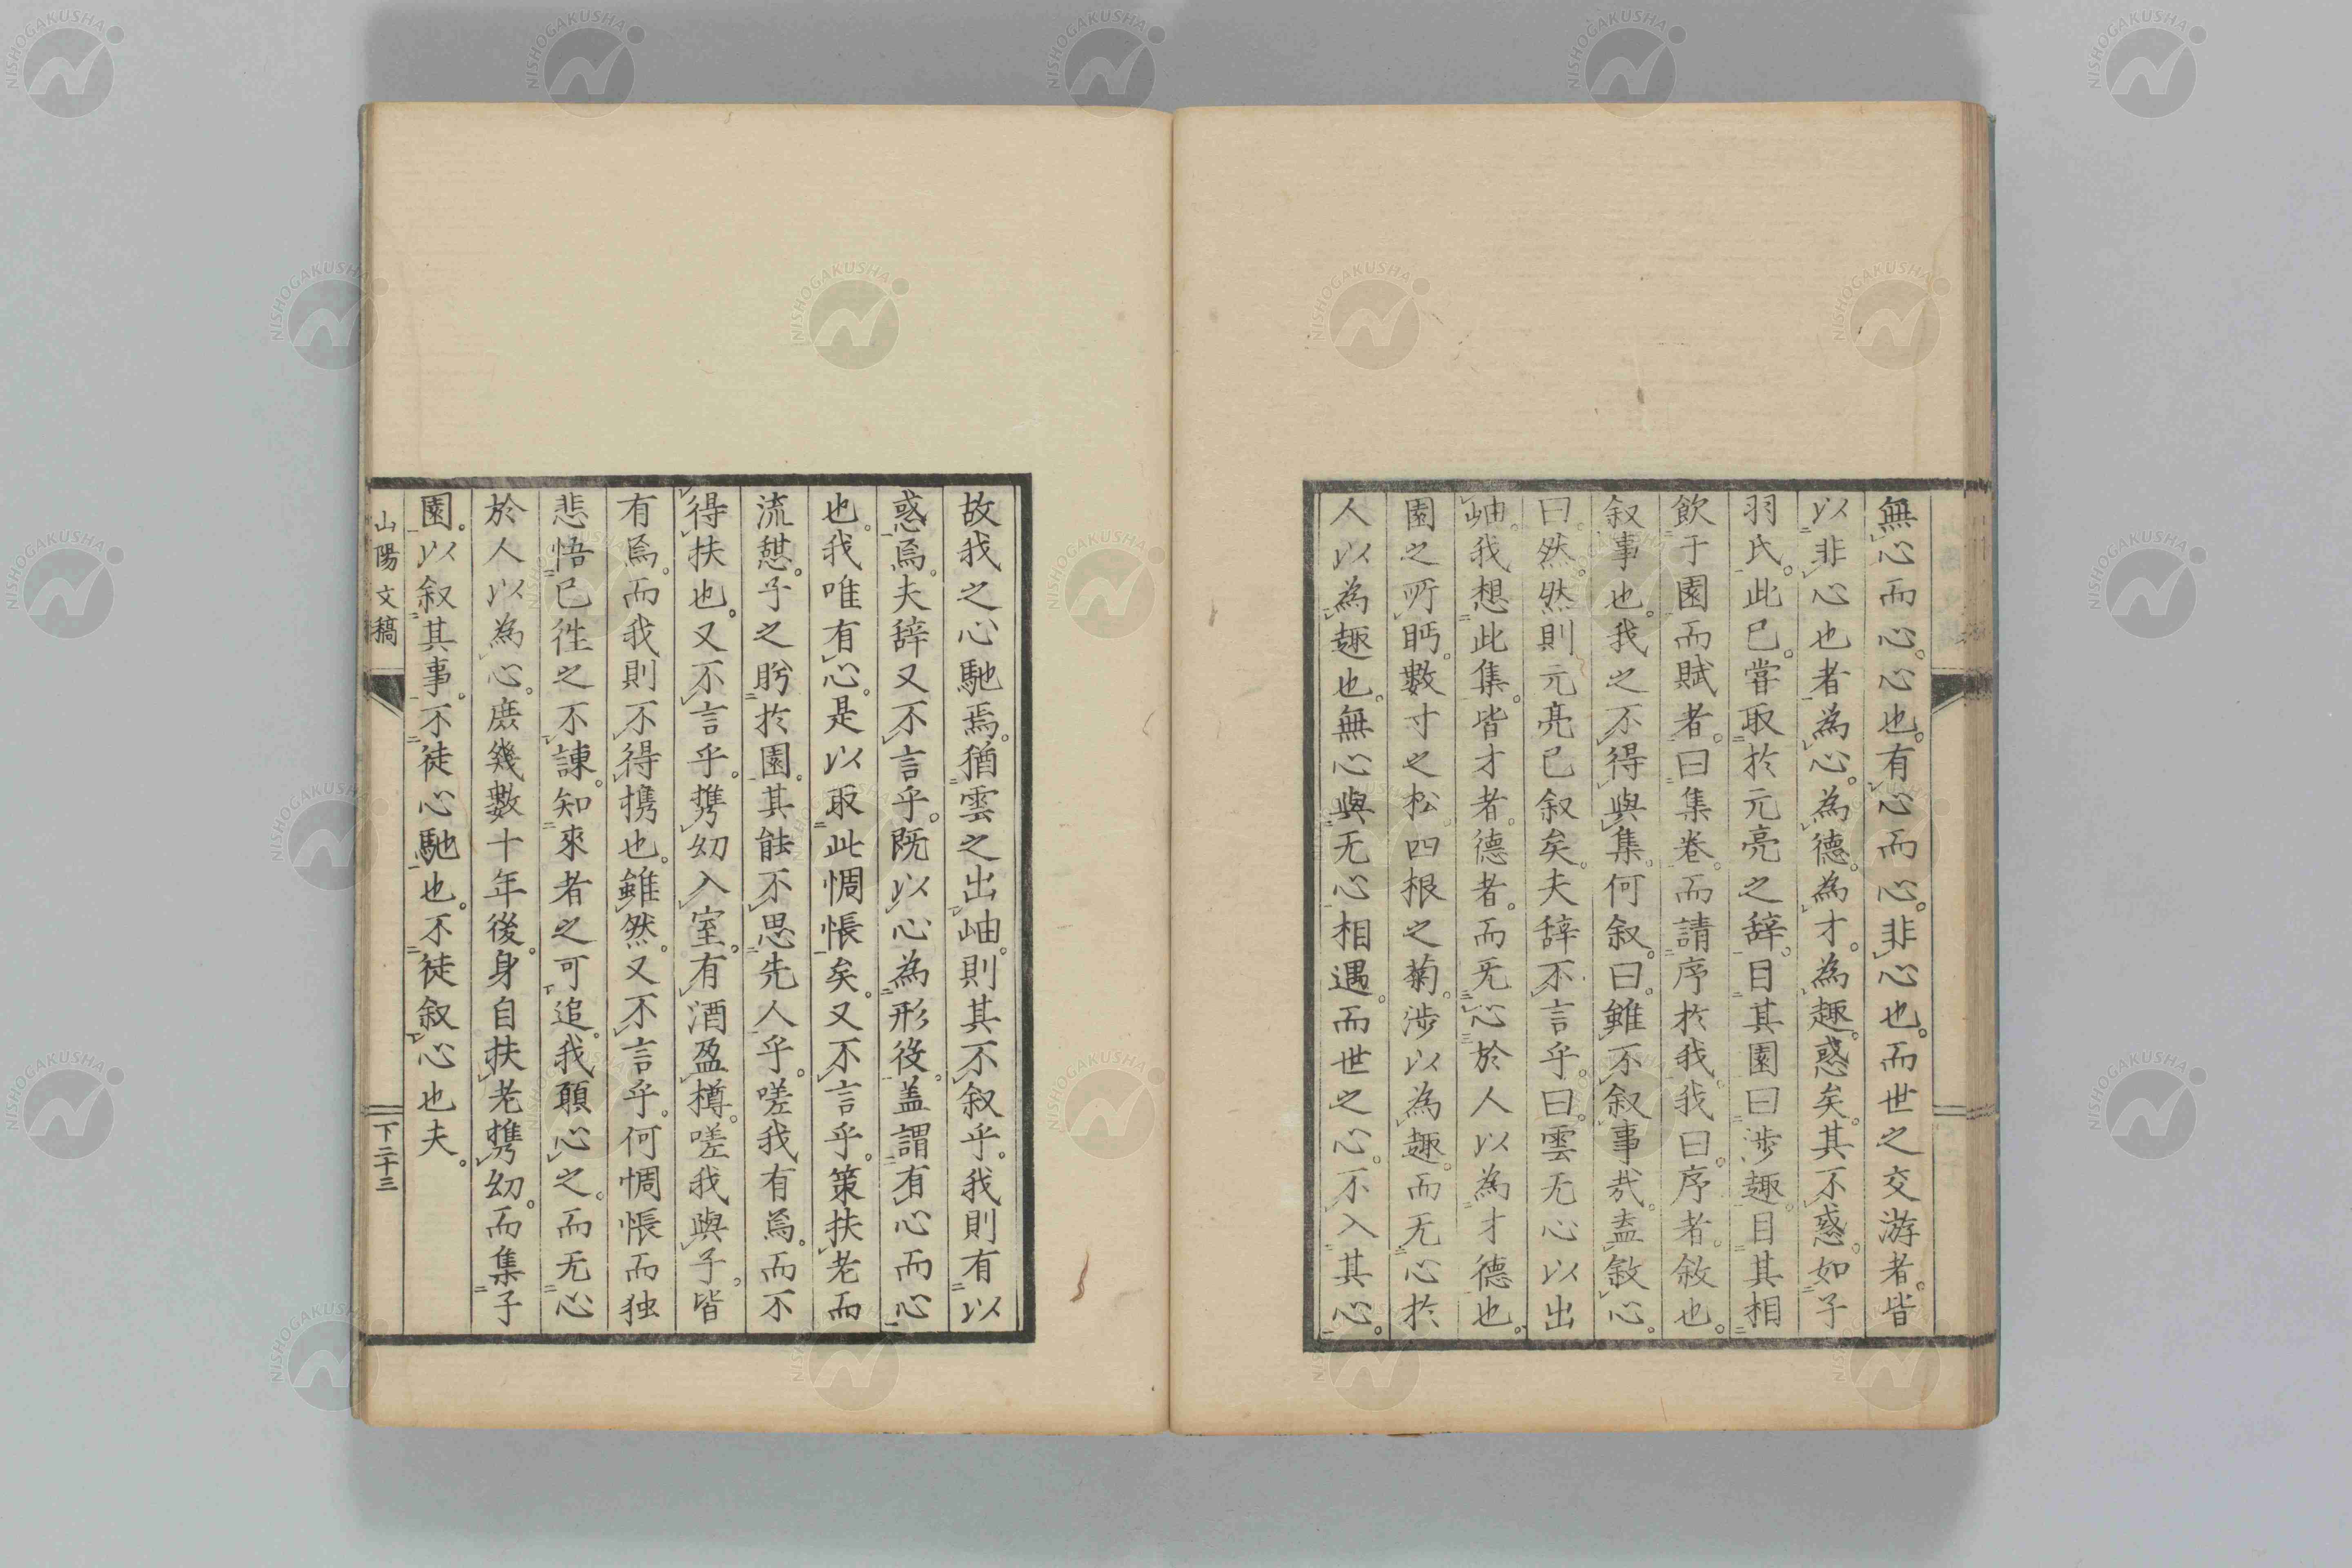 無心而心。心也。有心而心。非心也。而世之交游者。皆
以非心也者為心。為德。為才。為趣。惑矣。其不惑。如子
羽氏。此已。嘗取於元亮之辞。目其園曰涉趣。目其相
飲于園而賦者。曰集卷。而請序於我。我曰。序者。敘也。
叙事也。我之不得與集。何叙。曰。雖不叙事哉。盍敘心。
曰。然。然則元亮已叙矣。夫辞不言乎。曰。雲无心以出
岫。我想此集。皆才者。德者。而无心於人以為才德也。
園之所眄。數寸之松。四根之菊。涉以為趣。而无心於
人以為趣也。無心與无心相遇。而世之心。不入其心。
故我之心馳焉。猶雲之出岫。則其不叙乎。我則有以
惑焉。夫辞又不言乎。既以心為形役。盖謂有心而心
也。我唯有心。是以取此惆悵矣。又不言乎。策扶老而
流憩。子之眄於園。其能不思先人乎。嗟我有焉。而不
得扶也。又不言乎。携幼入室。有酒盈樽。嗟我與子。皆
有焉。而我則不得携也。雖然。又不言乎。何惆悵而独
悲。悟已往之不諌。知來者之可追。我願心之。而无心
於人以為心。庶幾數十年後。身自扶老携幼。而集子
園。以叙其事。不徒心馳也。不徒叙心也夫。
山陽文稿
下二十三
NISHOGAKUSHA